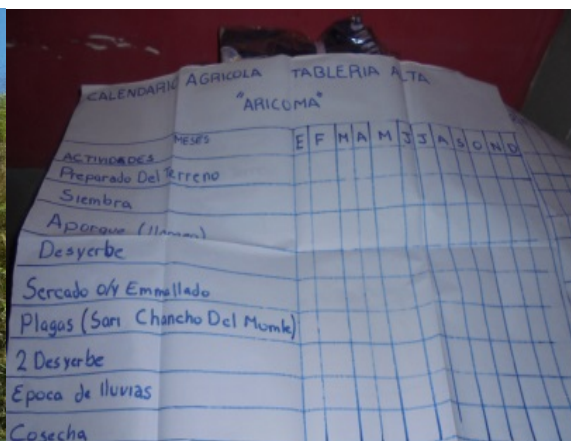 CALENDARIO AGRICOLA TABLERIA ALTA
"ARICOMA"
MESES E F M A M J J A S O N D
ACTIVIDADES
Preparado Del Terreno
Siembra
Aporque
Desyerbe
Sercado o/y Enmallado
Plagas (Sari Chancho Del Monte)
2 Desyerbe
Epoca de lluvias
Cosecha